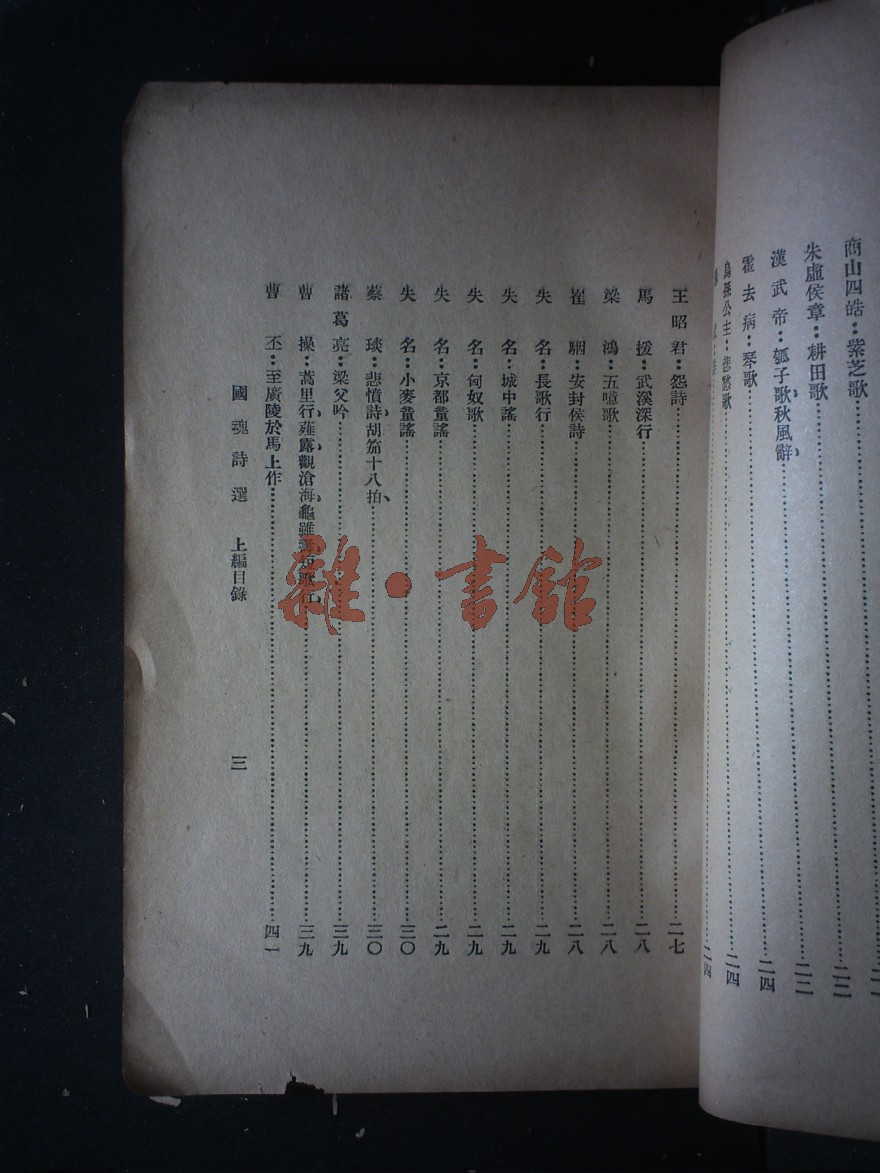 商山四皓：紫芝歌……二二
朱虛侯章：耕田歌……二三
漢武帝：瓠子歌、秋風辭……二四
霍去病：琴歌……二四
烏孫公主：悲愁歌……二四
王昭君：怨詩……二七
馬援：武溪深行……二八
梁鴻：五噫歌……二八
崔駰：安封侯詩……二八
失名：長歌行……二九
失名：城中謠……二九
失名：匈奴歌……二九
失名：京都童謠……二九
失名：小麥童謠……三〇
蔡琰：悲憤詩、胡笳十八拍、……三〇
諸葛亮：梁父吟……三九
曹操：蒿里行、薤露、觀滄海、龜雖壽、短歌行、……三九
曹丕：至廣陵於馬上作……四一
國魂詩選 上編目錄 三
雜·書館